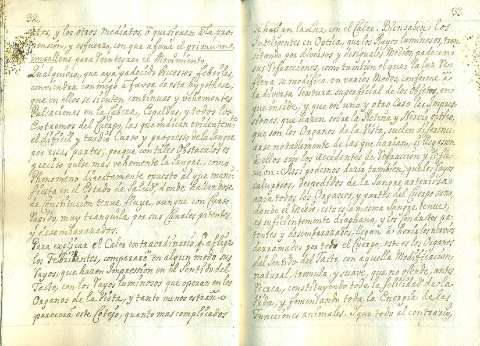 32.
otros, y los otros mediatos, o quasiguen la pro-
mension, y esfuerzo, con que afana el primum
para reintegrar el Movimiento
Qualquiera, que aya padecido Accessos febriles,
convendra conmigo a favor de esta hypothese,
que en ellos se sienten continuas y vehementes
Pulsaciones en la Cabeza, Costillas, y todos los
Extremos del Cuerpo, las que indican evidentemente
el dificil y tardio Curso y progresso de la Sangre
por essas partes, porque con tales Obstaculos es
preciso pulse mas vehemente la Sangre, como
Phenomeno directamente opuesto al que mani-
fiesta en el Estado de Salud donde
de Constitucion tenue fluye, aunque con cuasi
Presion, muy tranquila por sus Canales patentes,
y desembarazados.
Para explicar el Calor extraordinario, q.e aflige
los Febricitantes, compararé en algun modo sus
Rayos, que hazen Impression en el Sentido del
Tacto, con los Rayos luminosos que operan en los
Organos de la Vista, y tanto menos estraño
parecerá este Cotejo, quanto mas complicados
33.
se hallan la Luz con el Calor. Bien saben los
Inteligentes en Optica, que los Rayos luminosos, tran-
sitando por diversos, y desiguales Medios, padecen a-
refracciones, como tambien el que la luz ver-
tida se modifica en varios Modos, conforme à
la diversa Textura superficial de los Objetos, en
que incide, y que en uno, y otro Caso las Impres-
siones, que hazen sobre la Retina y Nervio optico,
que son los Organos de la Vista, suelen diferenciar-
se notablemente de las que harian, si llegassen
à ellos sin los accidentes de Refraccion y refle-
xion. Assi podemos decir tambien, que los Rayos
calurosos, despedidos de la Sangre naturalizan
en todos los Organos, y partes del Cuerpo sano
donde el Medio, esto es la misma Sangre tenue,
y suficientemente diaphana, y los Conductos pa-
tentes y desembarazados, llegan à los
derramados por todo el Cuerpo, esto es los Organos
del Sentido del Tacto, con aquella Modificacion
natural, tranquila, y suave, que no ofende, antes
recrea, constituyendo toda la felicidad de la
Vida, y fomentando toda la Energia de las
Funciones animales. Y que todo al contrario,